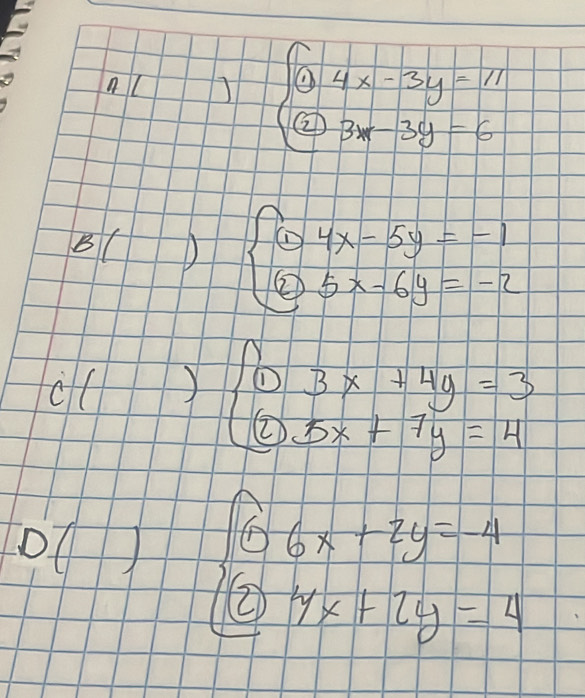 A ( ) { ① 4x - 3y = 11
② 3x - 3y = 6
B ( ) { ① 4x - 5y = -1
② 5x - 6y = -2
C ( ) { ① 3x + 4y = 3
② 5x + 7y = 4
D ( ) { ① 6x + 2y = -4
② 4x + 2y = 4